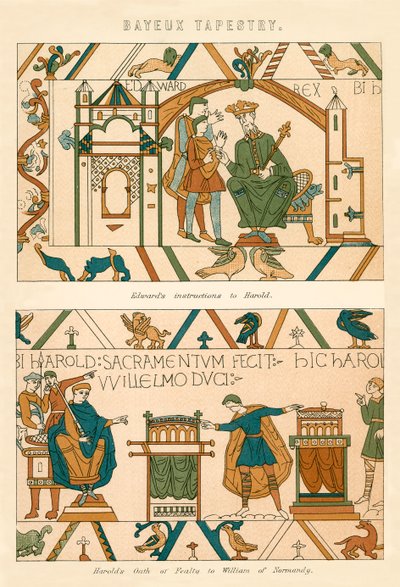 BAYEUX TAPESTRY.
EDWARD REX : BI h
Edward's instructions to Harold.
BI hAROLD : SACRAMENTVM FECIT :~ hIC hAROL
VVILLELMO DVCI :~
Harold's Oath of Fealty to William of Normandy.